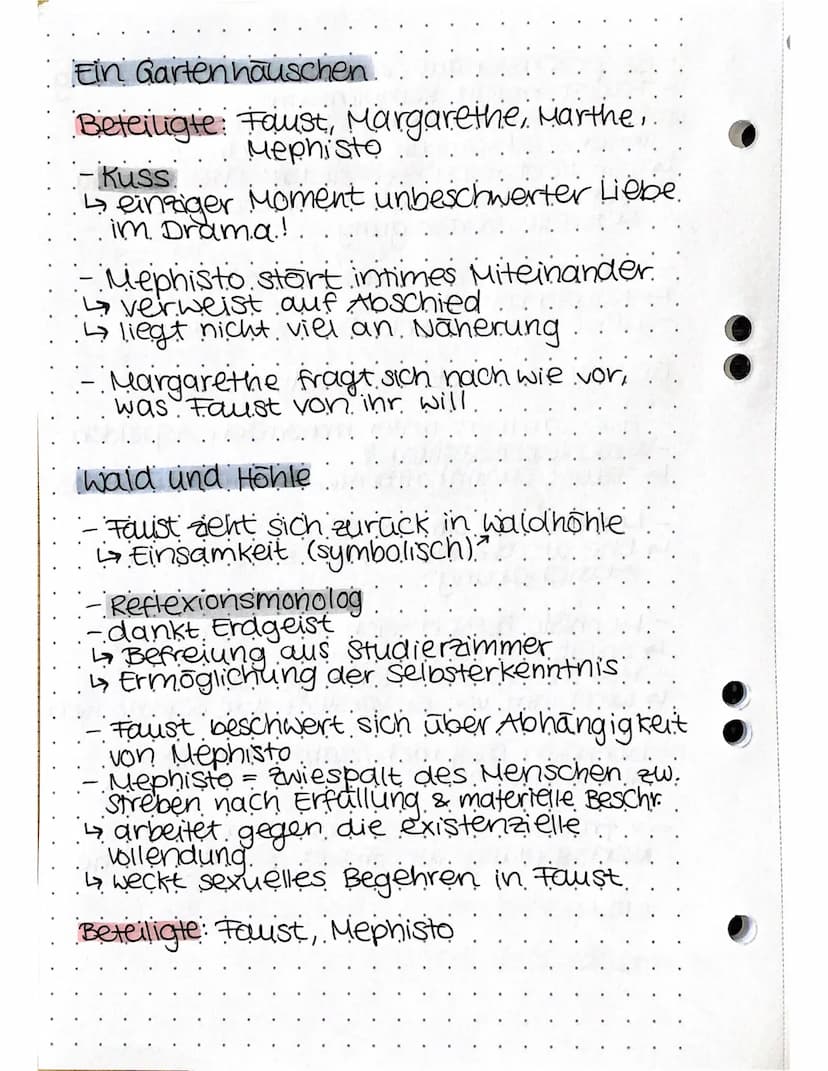 Ein Gartenhäuschen
Beteiligte: Faust, Margarethe, Marthe,
Mephisto
- Kuss
↳ einziger Moment unbeschwerter Liebe
im Drama!
- Mephisto stört intimes Miteinander
↳ verweist auf Abschied
↳ liegt nicht viel an Näherung
- Margarethe fragt sich nach wie vor,
was Faust von ihr will
Wald und Höhle
- Faust zieht sich zurück in Waldhöhle
↳ Einsamkeit (symbolisch)
- Reflexionsmonolog
- dankt Erdgeist
↳ Befreiung aus Studierzimmer
↳ Ermöglichung der Selbsterkenntnis
- Faust beschwert sich über Abhängigkeit
von Mephisto
- Mephisto = Zwiespalt des Menschen zw.
Streben nach Erfüllung & materielle Beschr.
↳ arbeitet gegen die existenzielle
Vollendung
↳ weckt sexuelles Begehren in Faust
Beteiligte: Faust, Mephisto